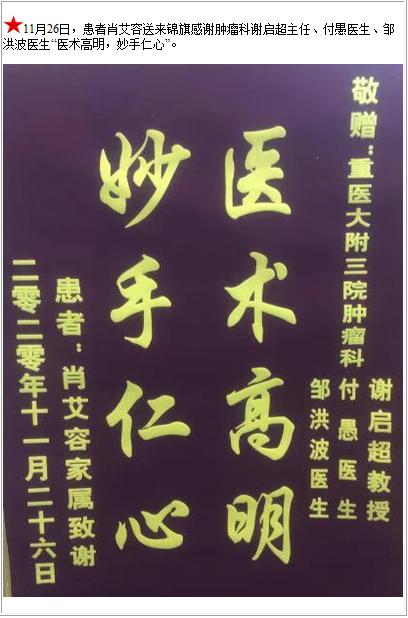 ★11月26日，患者肖艾容送来锦旗感谢肿瘤科谢启超主任、付愚医生、邹
洪波医生“医术高明，妙手仁心”。
敬赠：重医大附三院肿瘤科
谢启超教授
付愚医生
邹洪波医生
医术高明
妙手仁心
患者：肖艾容家属致谢
二零二零年十一月二十六日